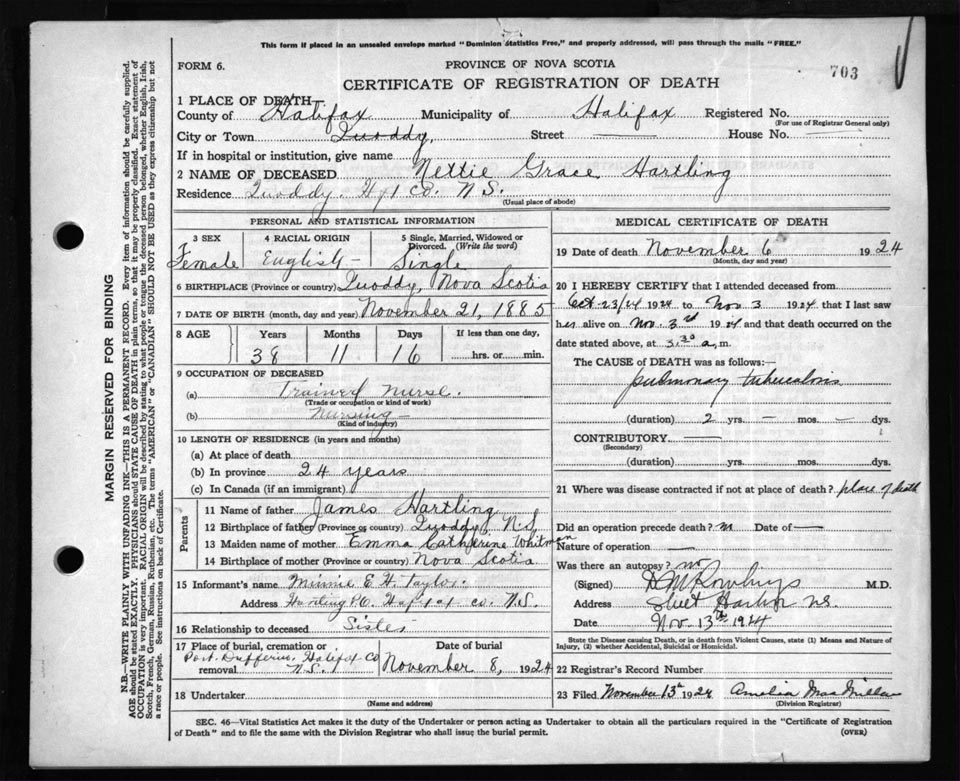 This form if placed in an unsealed envelope marked "Dominion Statistics Free," and properly addressed, will pass through the mails "FREE."
FORM 6.
PROVINCE OF NOVA SCOTIA
703
CERTIFICATE OF REGISTRATION OF DEATH
1 PLACE OF DEATH—
County of Halifax Municipality of Halifax Registered No.
(For use of Registrar General only)
City or Town Quoddy, Street House No.
If in hospital or institution, give name
2 NAME OF DECEASED Nettie Grace Hartling
Residence Quoddy. Hfx Co. N.S.
(Usual place of abode)
PERSONAL AND STATISTICAL INFORMATION
3 SEX 4 RACIAL ORIGIN 5 Single, Married, Widowed or Divorced. (Write the word)
Female English— Single
6 BIRTHPLACE (Province or country) Quoddy, Nova Scotia
7 DATE OF BIRTH (month, day and year) November 21, 1885
8 AGE Years Months Days If less than one day,
38 11 16 hrs. or min.
9 OCCUPATION OF DECEASED
(a) Trained Nurse.
(Trade or occupation or kind of work)
(b) Nursing—
(Kind of industry)
10 LENGTH OF RESIDENCE (in years and months)
(a) At place of death
(b) In province 24 years
(c) In Canada (if an immigrant)
Parents
11 Name of father James Hartling
12 Birthplace of father (Province or country) Quoddy, N.S.
13 Maiden name of mother Emma Catherine Whitman
14 Birthplace of mother (Province or country) Nova Scotia
15 Informant's name Minnie E. H. Taylor
Address Hartling P.O. co. N.S.
16 Relationship to deceased Sister
17 Place of burial, cremation or removal Date of burial
Port Dufferin, Halifax Co N.S. November 8, 1924
18 Undertaker
(Name and address)
MEDICAL CERTIFICATE OF DEATH
19 Date of death November 6 1924
(Month, day and year)
20 I HEREBY CERTIFY that I attended deceased from
Oct 23/24 1924 to Nov 3 1924 that I last saw
her alive on Nov. 3rd 1924 and that death occurred on the
date stated above, at 5.30 a.m.
The CAUSE of DEATH was as follows:—
pulmonary tuberculosis
(duration) 2 yrs. — mos. dys.
CONTRIBUTORY
(Secondary)
(duration) yrs. mos. dys.
21 Where was disease contracted if not at place of death? place of death
Did an operation precede death? no Date of—
Nature of operation —
Was there an autopsy? no
(Signed) M.D.
Address Sheet Harbor N.S.
Date Nov. 13th 1924
State the Disease causing Death, or in death from Violent Causes, state (1) Means and Nature of Injury, (2) whether Accidental, Suicidal or Homicidal.
22 Registrar's Record Number
23 Filed November 13th 1924 Amelia MacMillan
(Division Registrar)
SEC. 46—Vital Statistics Act makes it the duty of the Undertaker or person acting as Undertaker to obtain all the particulars required in the "Certificate of Registration
of Death" and to file the same with the Division Registrar who shall issue the burial permit.
(OVER)
MARGIN RESERVED FOR BINDING
N.B.—WRITE PLAINLY WITH UNFADING INK—THIS IS A PERMANENT RECORD. Every item of information should be carefully supplied.
AGE should be stated EXACTLY. PHYSICIANS should STATE CAUSE OF DEATH in plain terms, so that it may be properly classified. Exact statement of
OCCUPATION is very important. RACIAL ORIGIN will be described by stating to what people or tongue the deceased person belonged, whether English, Irish,
Scotch, French, German, Russian, Ruthenian, etc. The terms "AMERICAN" or "CANADIAN" SHOULD NOT BE USED as they express citizenship but not
a race or people. See instructions on back of Certificate.